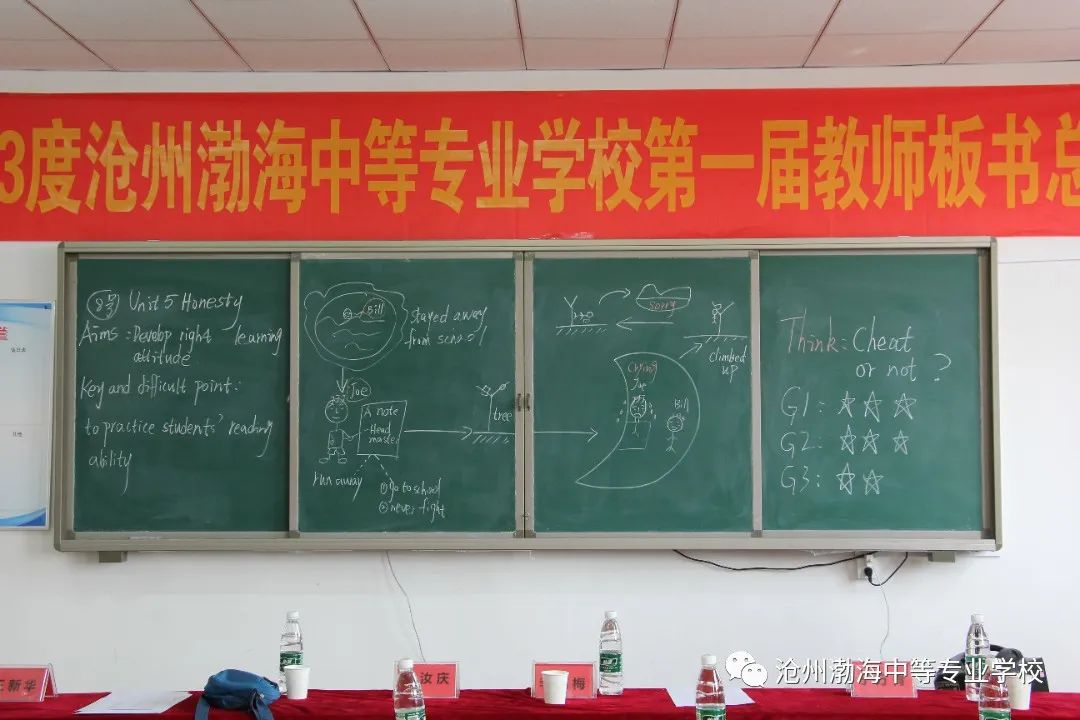 3度沧州渤海中等专业学校第一届教师板书总
8号 Unit 5 Honesty
Aims: Develop right learning
attitude
Key and difficult point:
to practice students' reading
ability
Bill
stayed away
from school
Joe
A note
-Head
master
run away
① go to school
② never fight
tree
Sorry
climbed
up
Crying
Joe
Bill
Think: Cheat
or not?
G1: ☆☆☆
G2: ☆☆☆
G3: ☆☆
王新华
汝庆
梅
沧州渤海中等专业学校